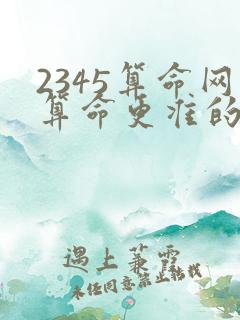 2345算命网
算命更准的
遇上兼霭
未经同意禁止转载